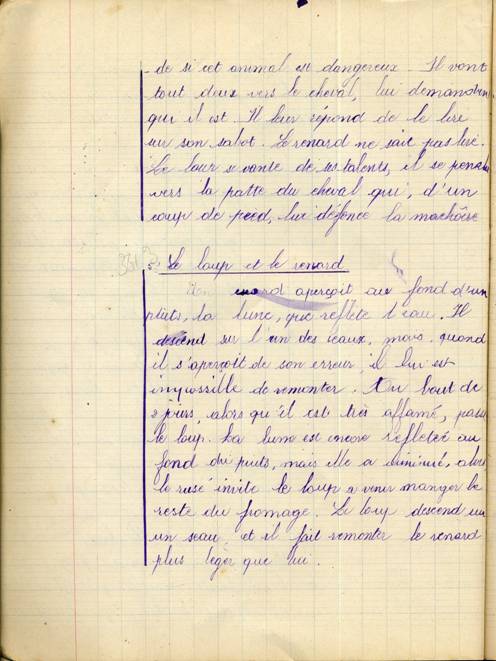 - de si cet animal est dangereux - Il vont
tout deux vers le cheval, lui demandent
qui il est. Il leur répond de le lire
sur son sabot. Le renard ne sait pas lire.
Le loup se vante de ses talents, il se penche
vers la patte du cheval qui, d'un
coup de pied, lui défonce la machoire
3º Le loup et le renard
renard aperçoit au fond d'un
puits, la lune, que reflète l'eau. Il
descend sur l'un des seaux, mais quand
il s'aperçoit de son erreur, il lui est
impossible de remonter. Au bout de
2 jours, alors qu'il est très affamé, passe
le loup. La lune est encore refleteé au
fond du puits, mais elle a diminué, alors
le rusé invite le loup a venir manger le
reste du fromage. Le loup descend
un seau, et il fait remonter le renard
plus leger que lui.